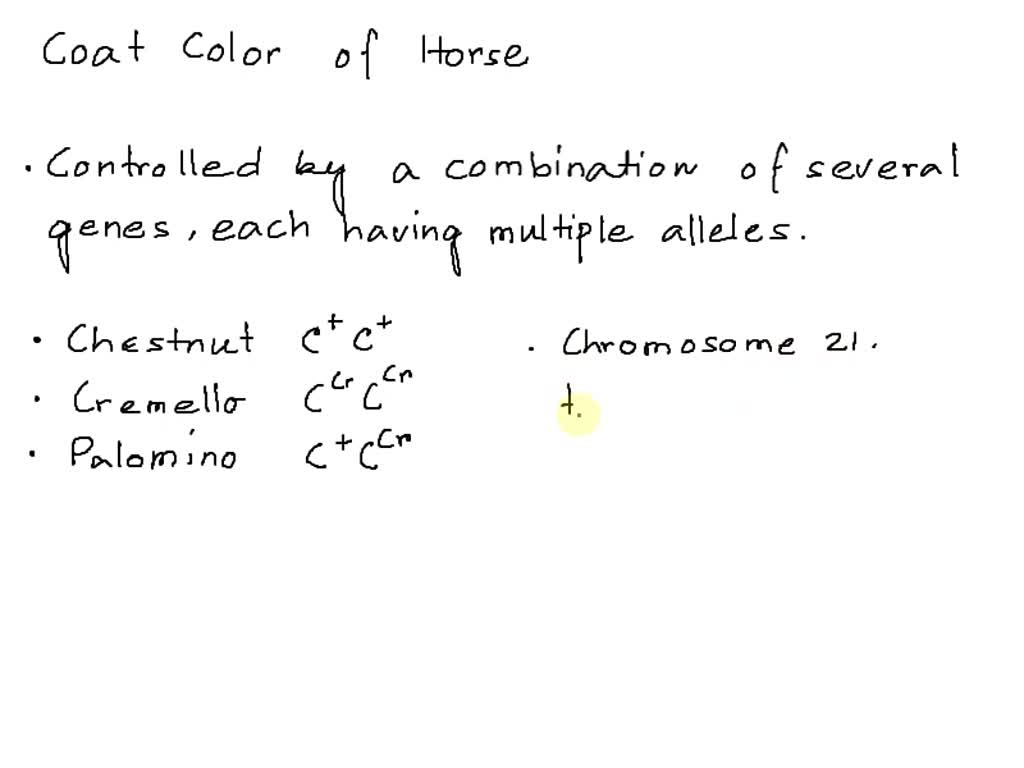 Coat Color of Horse
· Controlled by a combination of several
genes, each having multiple alleles.
· Chestnut C⁺C⁺
· Cremello C^Cr C^Cr
· Palomino C⁺C^Cr
· Chromosome 21.
t.